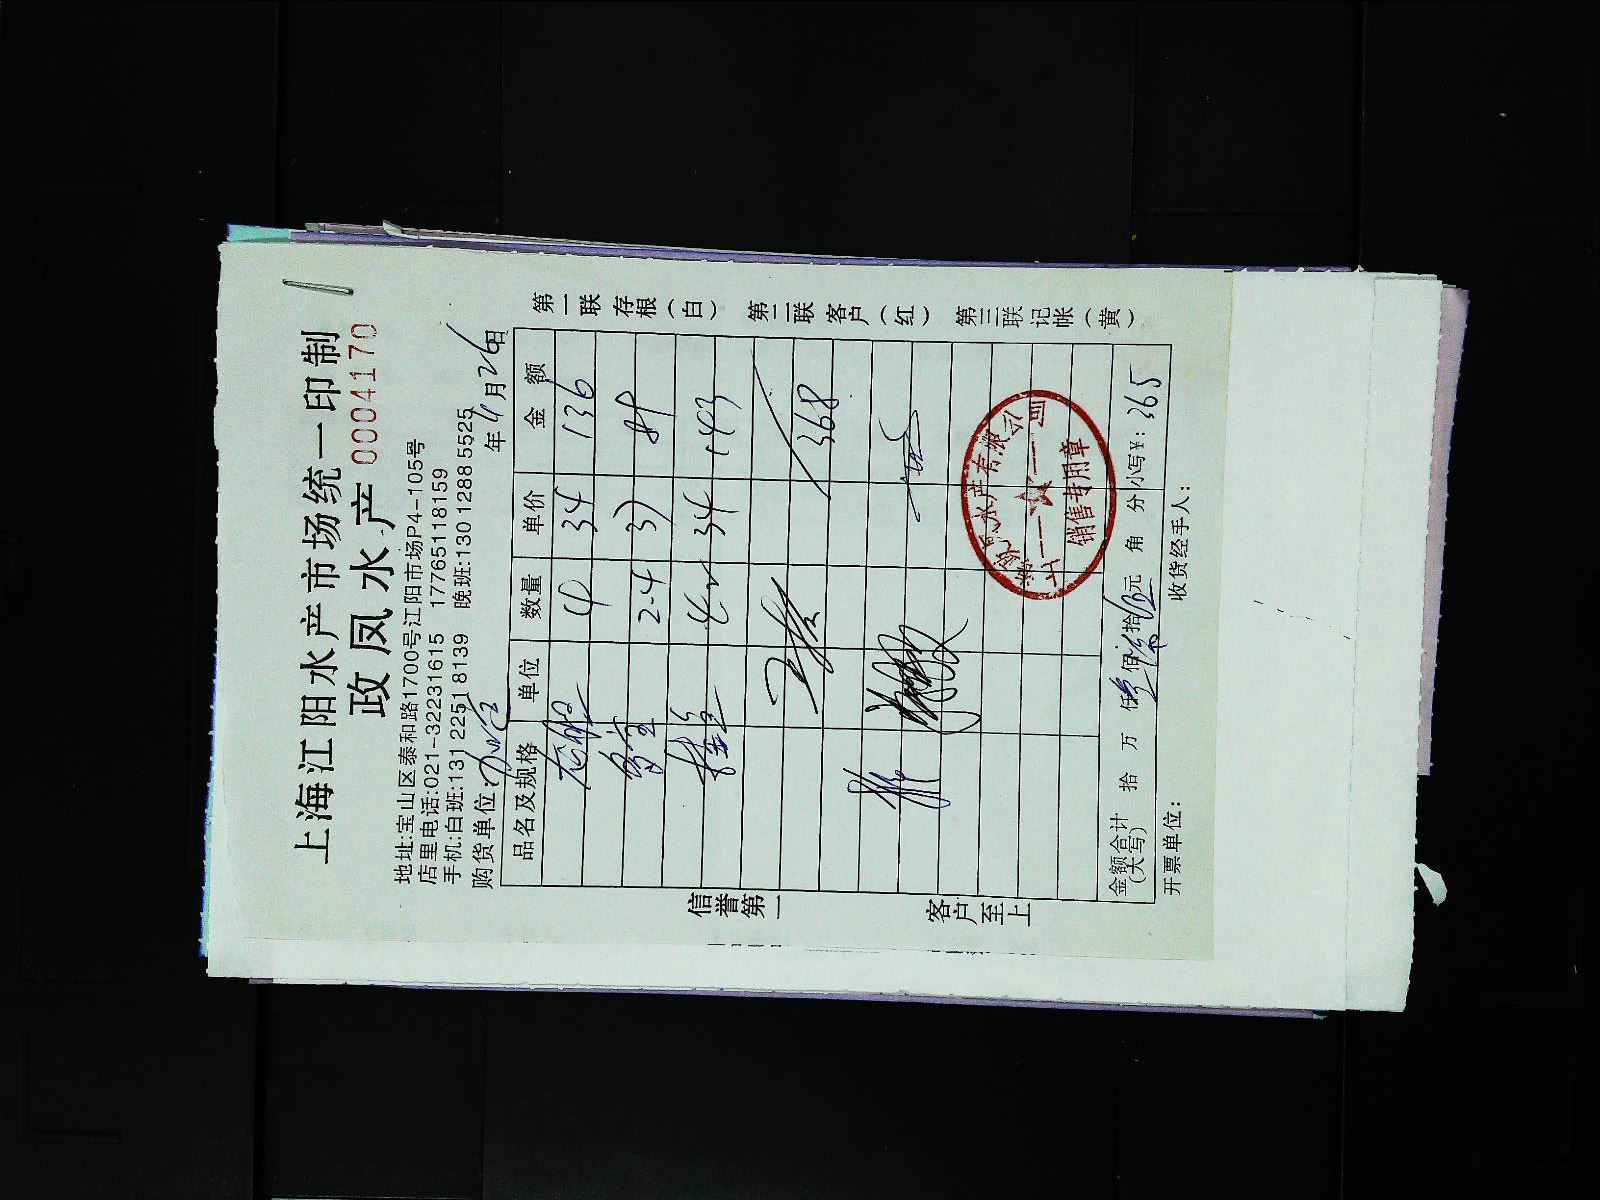 上海江阳水产市场统一印制
政凤水产 0004170
地址:宝山区泰和路1700号江阳市场P4-105号
店里电话:021-32231615 17765118159
手机:白班:131 2251 8139 晚班:130 1288 5525
购货单位: 年4月26日
品名及规格 单位 数量 单价 金额
4 34 136
2.4 37 89
34 143
368
金额合计(大写) 拾 万 仟 佰 拾 元 角 分 小写¥: 365
开票单位: 收货经手人:
第一联存根(白) 第二联客户(红) 第三联记帐(黄)
信誉第一 客户至上
水产有限公司
销售专用章